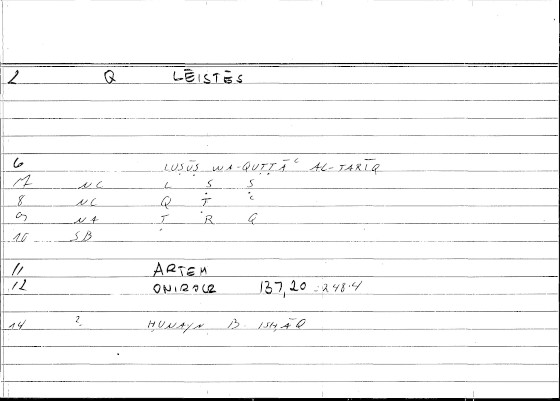 2 Q LĒISTĒS
6 LUṢŪṢ WA-QUṬṬĀʿ AL-ṬARĪQ
7 NC L Ṣ Ṣ
8 NC Q Ṭ ʿ
9 NA Ṭ R Q
10 SB
11 ARTEM
12 ONIROCR 137,20 :248.4
14 ? ḤUNAYN B. ISḤĀQ